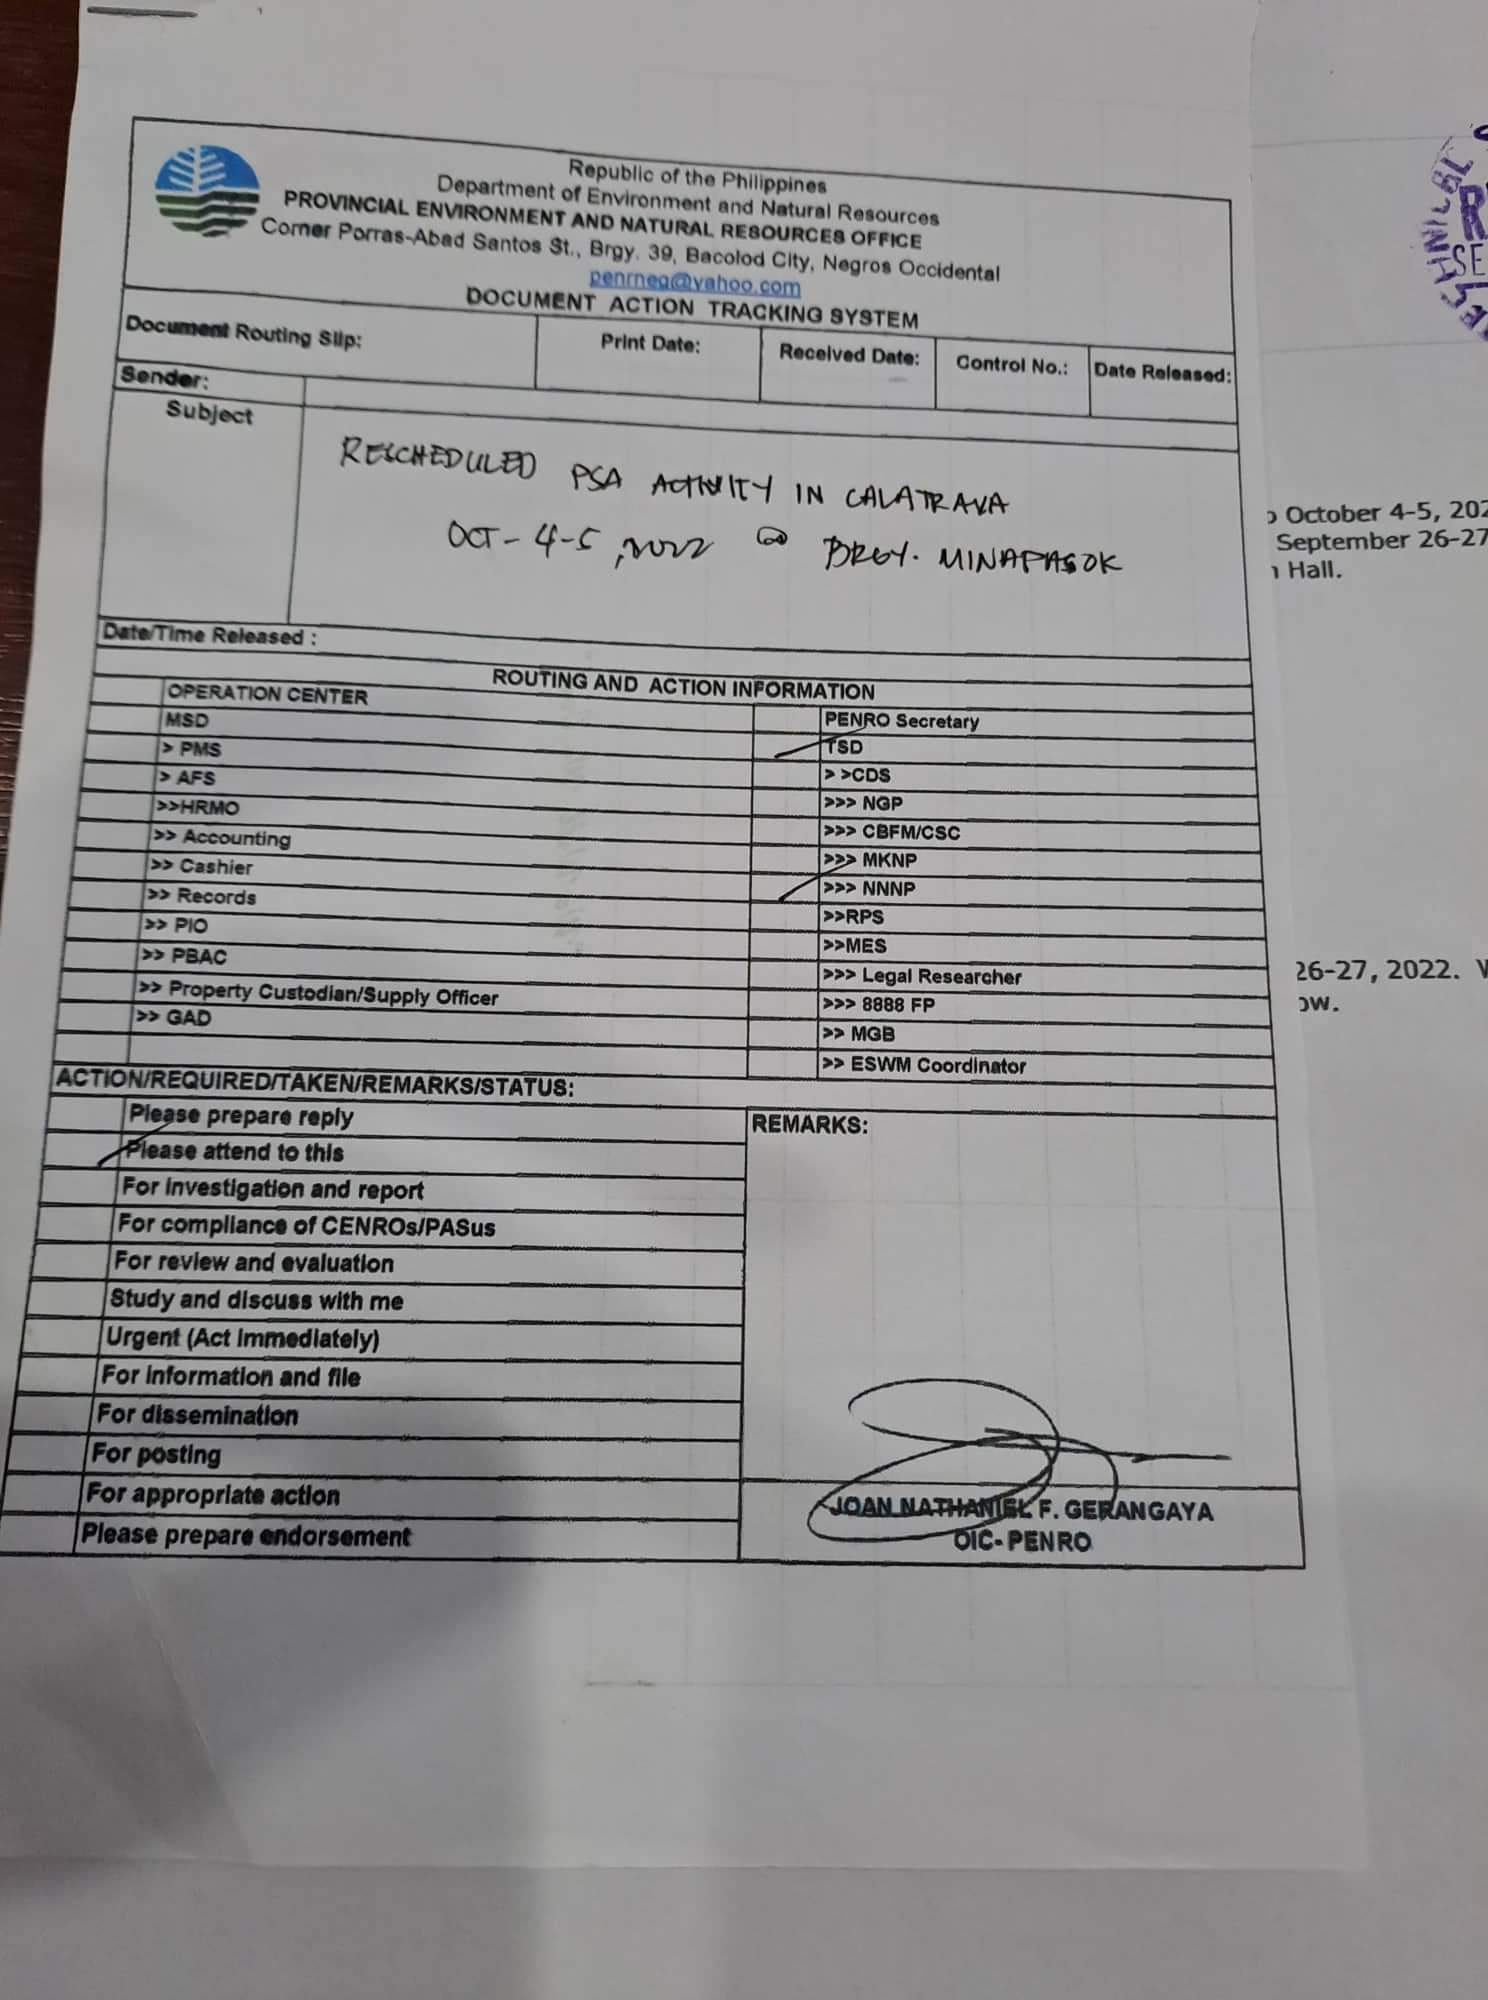 Republic of the Philippines
Department of Environment and Natural Resources
PROVINCIAL ENVIRONMENT AND NATURAL RESOURCES OFFICE
Corner Porras-Abad Santos St., Brgy. 39, Bacolod City, Negros Occidental
penrneg@yahoo.com
DOCUMENT ACTION TRACKING SYSTEM
Document Routing Slip: Print Date: Received Date: Control No.: Date Released:
Sender:
Subject
RESCHEDULED PSA ACTIVITY IN CALATRAVA
OCT- 4-5, 2022 @ BRGY. MINAPASOK
Date/Time Released :
ROUTING AND ACTION INFORMATION
OPERATION CENTER
MSD
> PMS
> AFS
>>HRMO
>> Accounting
>> Cashier
>> Records
>> PIO
>> PBAC
>> Property Custodian/Supply Officer
>> GAD
PENRO Secretary
TSD
> >CDS
>>> NGP
>>> CBFM/CSC
>>> MKNP
>>> NNNP
>>RPS
>>MES
>>> Legal Researcher
>>> 8888 FP
>> MGB
>> ESWM Coordinator
ACTION/REQUIRED/TAKEN/REMARKS/STATUS:
Please prepare reply
Please attend to this
For investigation and report
For compliance of CENROs/PASus
For review and evaluation
Study and discuss with me
Urgent (Act Immediately)
For information and file
For dissemination
For posting
For appropriate action
Please prepare endorsement
REMARKS:
JOAN NATHANIEL F. GERANGAYA
OIC- PENRO
October 4-5, 202
September 26-27
Hall.
26-27, 2022.
ow.